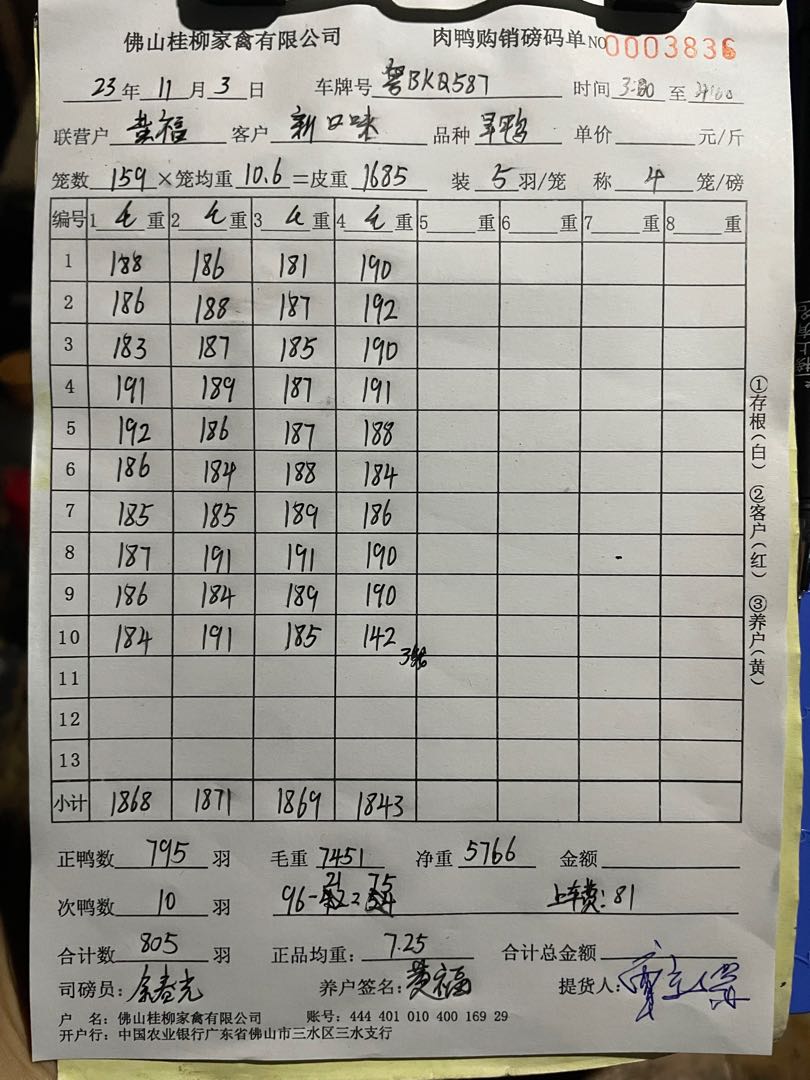 佛山桂柳家禽有限公司 肉鸭购销磅码单 NO 0003836
23年 11月 3日 车牌号 粤BKQ587 时间 3:30 至
联营户 黄福 客户 新口味 品种 旱鸭 单价 元/斤
笼数 159 ×笼均重 10.6 =皮重 1685 装 5 羽/笼 称 4 笼/磅
编号 1 毛 重 2 毛 重 3 毛 重 4 毛 重 5 重 6 重 7 重 8 重
1 188 186 181 190
2 186 188 187 192
3 183 187 185 190
4 191 189 187 191
5 192 186 187 188
6 186 184 188 184
7 185 185 189 186
8 187 191 191 190
9 186 184 189 190
10 184 191 185 142
3笼
11
12
13
小计 1868 1871 1869 1843
正鸭数 795 羽 毛重 7451 净重 5766 金额
次鸭数 10 羽 96-21=75 上车费:81
合计数 805 羽 正品均重: 7.25 合计总金额
司磅员: 余春光 养户签名: 黄福 提货人:
户 名: 佛山桂柳家禽有限公司 账号: 444 401 010 400 169 29
开户行: 中国农业银行广东省佛山市三水区三水支行
①存根(白) ②客户(红) ③养户(黄)